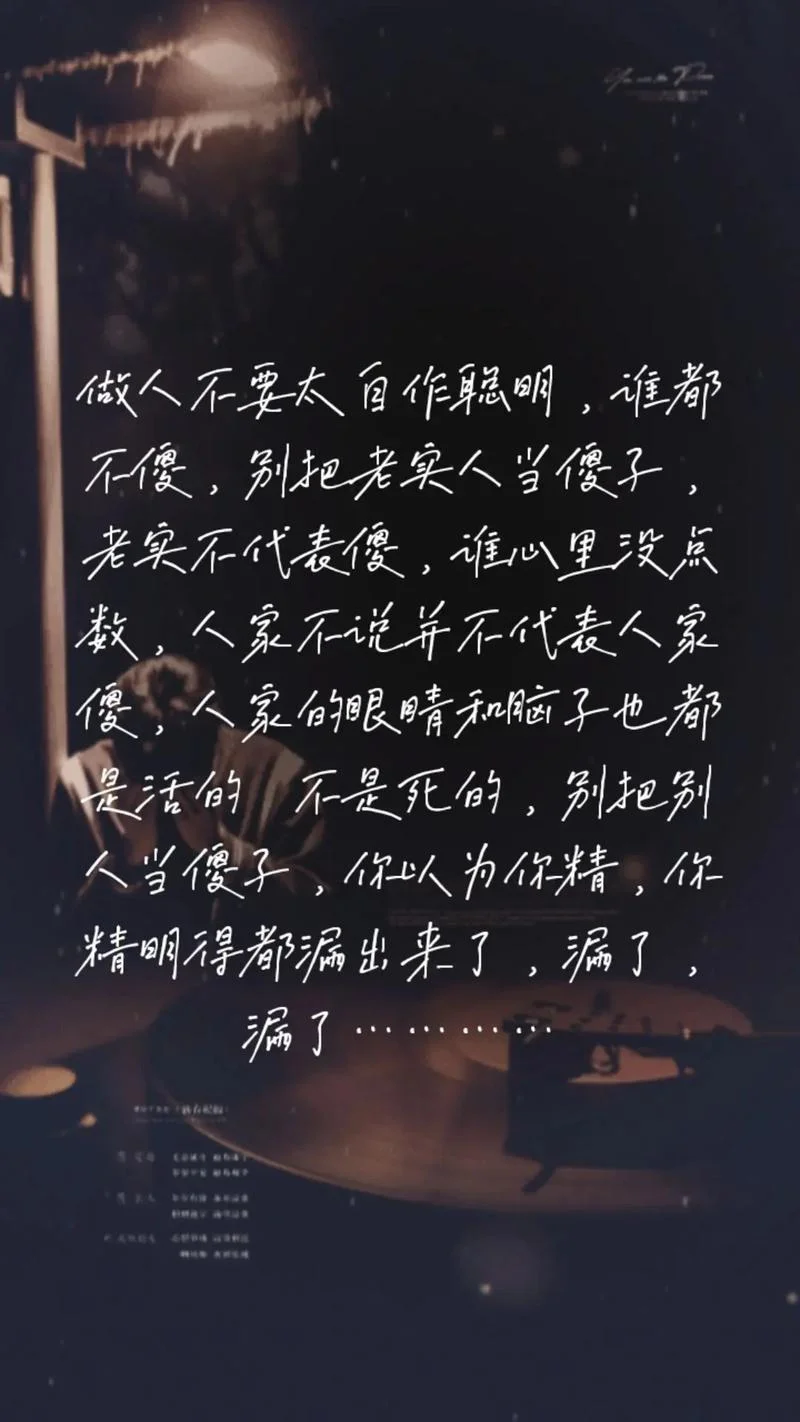 做人不要太自作聪明，谁都
不傻，别把老实人当傻子，
老实不代表傻，谁心里没点
数，人家不说并不代表人家
傻，人家的眼睛和脑子也都
是活的　不是死的，别把别
人当傻子，你以为你精，你
精明得都漏出来了，漏了，
漏了…………